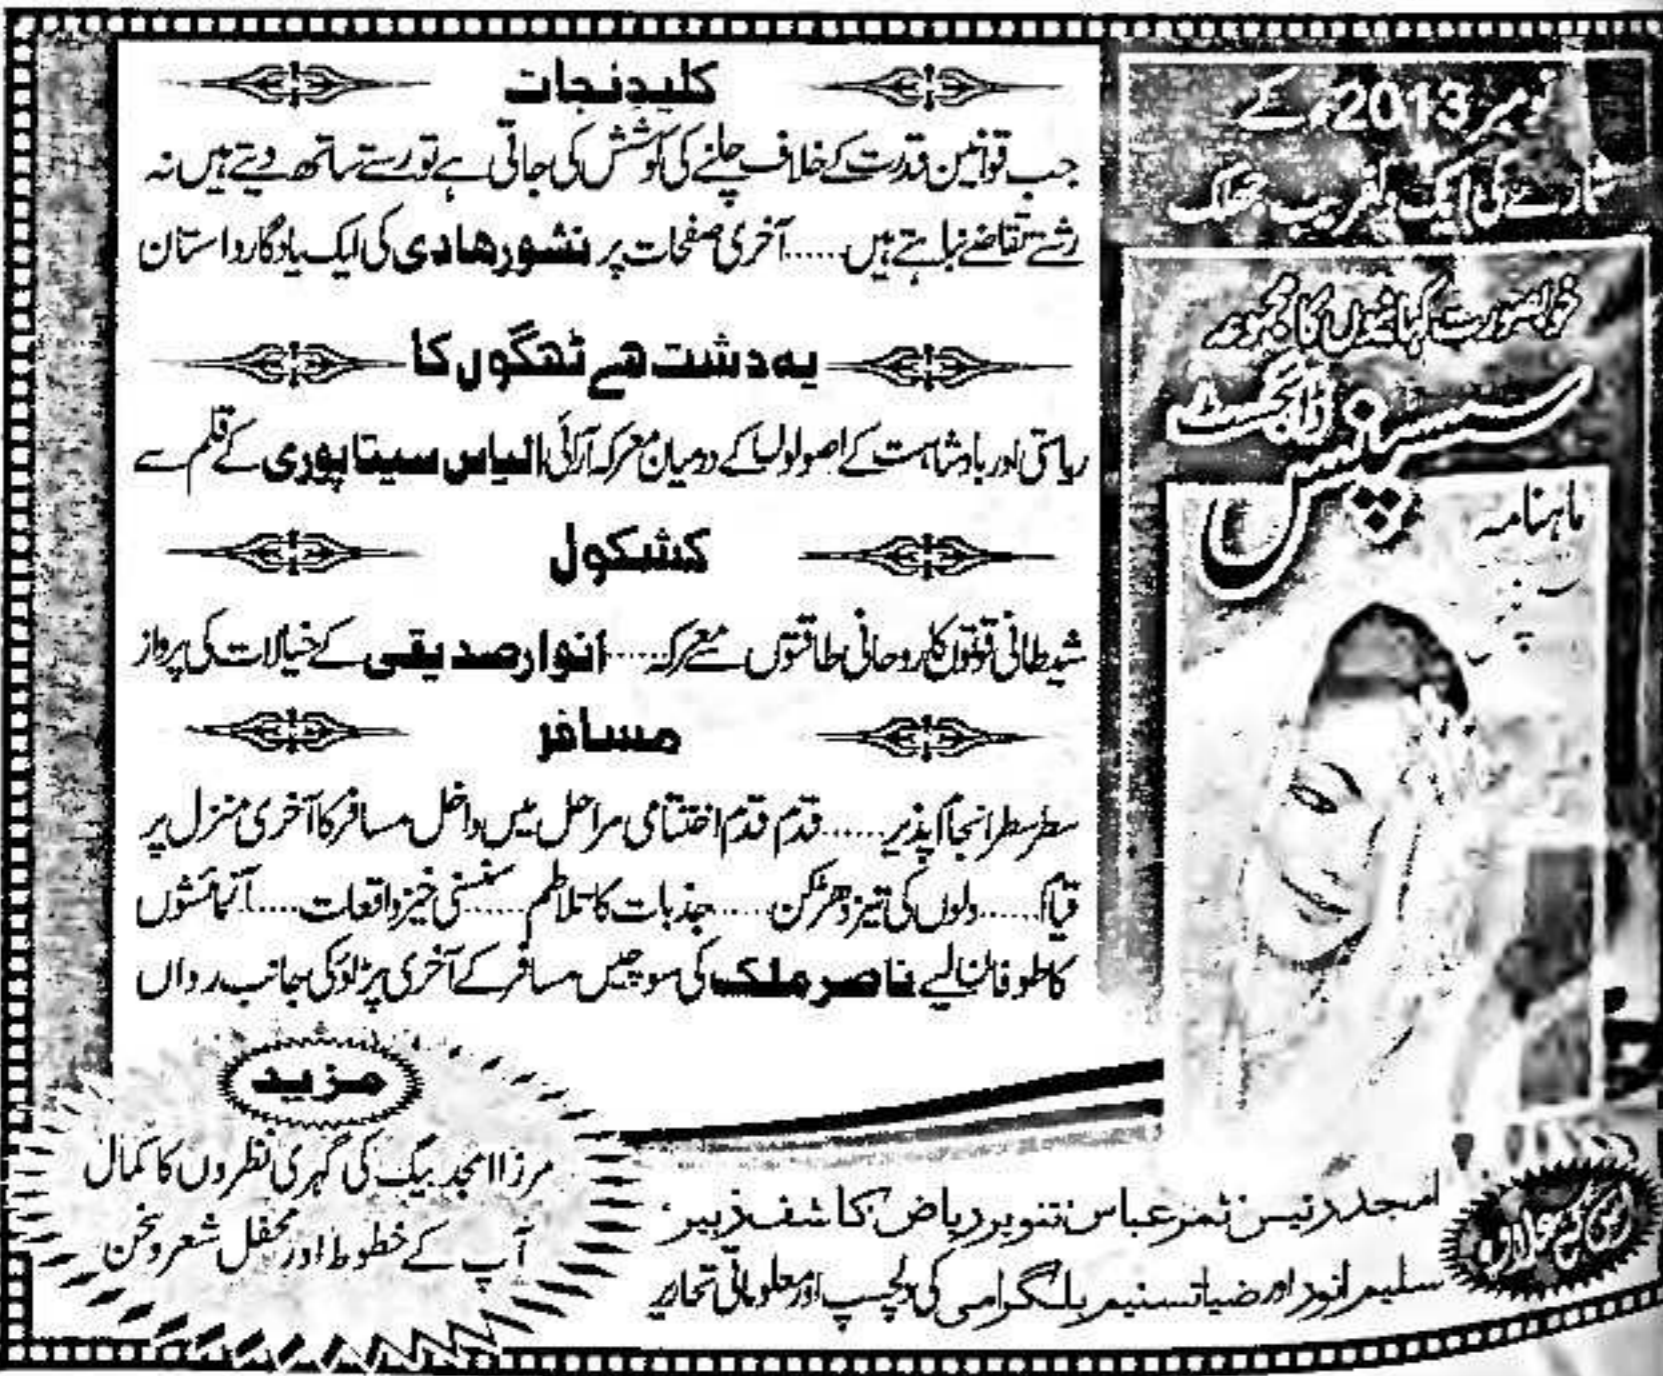 نومبر 2013ء کے
شمارے کی ایک دلفریب جھلک
خوبصورت کہانیوں کا مجموعہ
سسپنس ڈائجسٹ
ماہنامہ
سسپنس
کلید نجات
جب قوانین قدرت کے خلاف چلنے کی کوشش کی جاتی ہے تو رستے ساتھ دیتے ہیں نہ
رشتے تقاضے نباہتے ہیں...... آخری صفحات پر نشور هادی کی ایک یادگار داستان
یہ دشت ھے ٹھگوں کا
ریاستی اور بادشاہت کے اصولوں کے درمیان معرکہ آرائی الیاس سیتا پوری کے قلم سے
کشکول
شیطانی قوتوں کا روحانی طاقتوں سے معرکہ..... انوار صدیقی کے خیالات کی پرواز
مسافر
سطر سطر انجام پذیر...... قدم قدم اختتامی مراحل میں داخل مسافر کا آخری منزل پر
قیام...... دلوں کی تیز دھڑکن..... جذبات کا تلاطم...... سنسنی خیز واقعات..... آزمائشوں
کا طوفان لیے ناصر ملک کی سوچیں مسافر کے آخری پڑاؤ کی جانب رواں
مزید
مرزا امجد بیگ کی گہری نظروں کا کمال
آپ کے خطوط اور محفل شعر و سخن
اس کے علاوہ
امجد رئیس، ثمر عباس، تنویر ریاض، کاشف زبیر،
سلیم انور اور ضیا تسنیم بلگرامی کی دلچسپ اور معلوماتی تحاریر